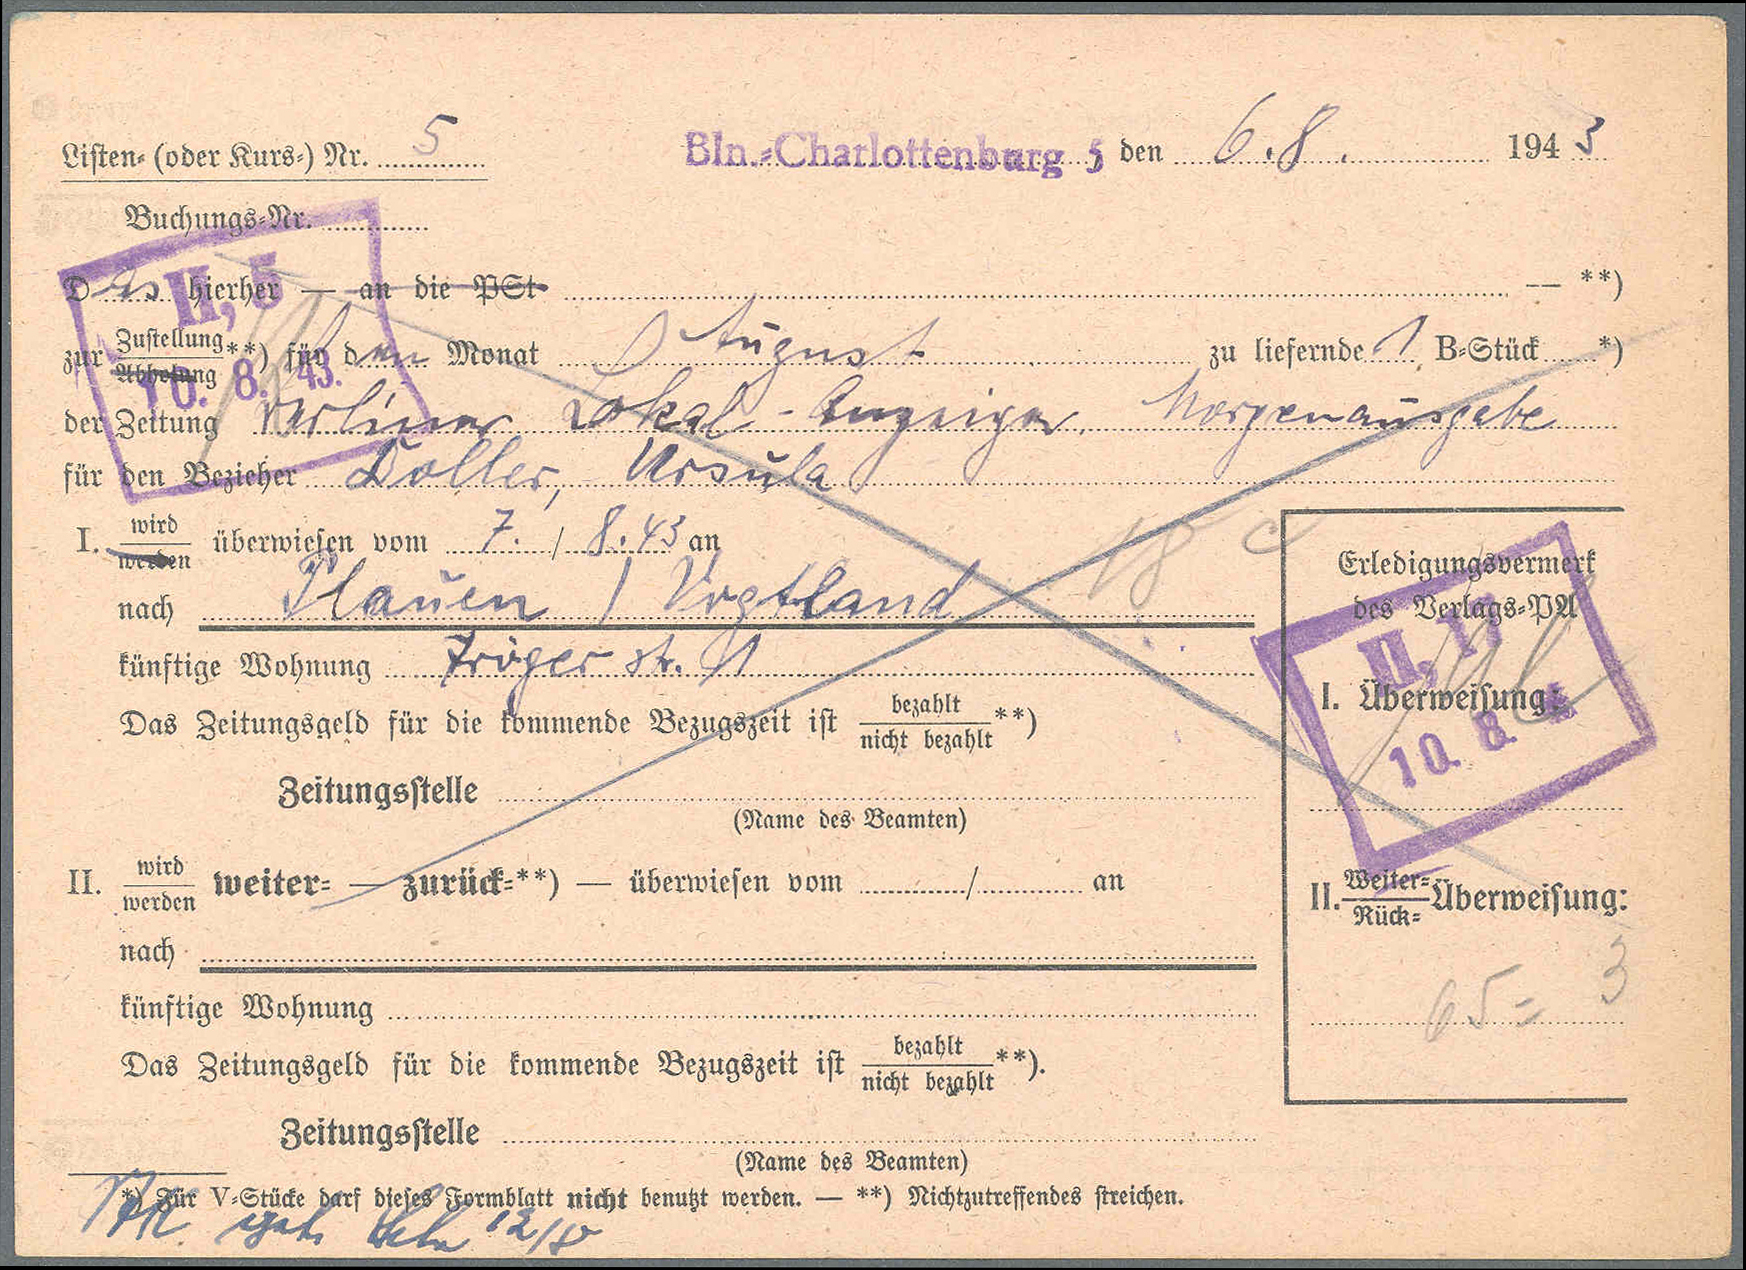 Listen- (oder Kurs-) Nr. 5
Bln.-Charlottenburg 5 den 6.8. 1943
Buchungs-Nr.
Das hierher — an die PSt — **)
zur Zustellung/Abholung **) für den Monat August zu liefernde 1 B-Stück *)
der Zeitung Berliner Lokal-Anzeiger Morgenausgabe
für den Bezieher Doller, Ursula
II, 5
10. 8. 43.
I. wird/werden überwiesen vom 7. / 8.43 an
nach Plauen / Vogtland
künftige Wohnung Tröger str. 11
Das Zeitungsgeld für die kommende Bezugszeit ist bezahlt/nicht bezahlt **)
Zeitungsstelle
(Name des Beamten)
Erledigungsvermerk
des Verlags-PA
I. Überweisung:
10. 8.
II. wird/werden weiter- — zurück-**) — überwiesen vom / an
nach
künftige Wohnung
Das Zeitungsgeld für die kommende Bezugszeit ist bezahlt/nicht bezahlt **).
Zeitungsstelle
(Name des Beamten)
II. Weiter-/Rück- Überweisung:
65 = 3
*) Für V-Stücke darf dieses Formblatt nicht benutzt werden. — **) Nichtzutreffendes streichen.
12/8